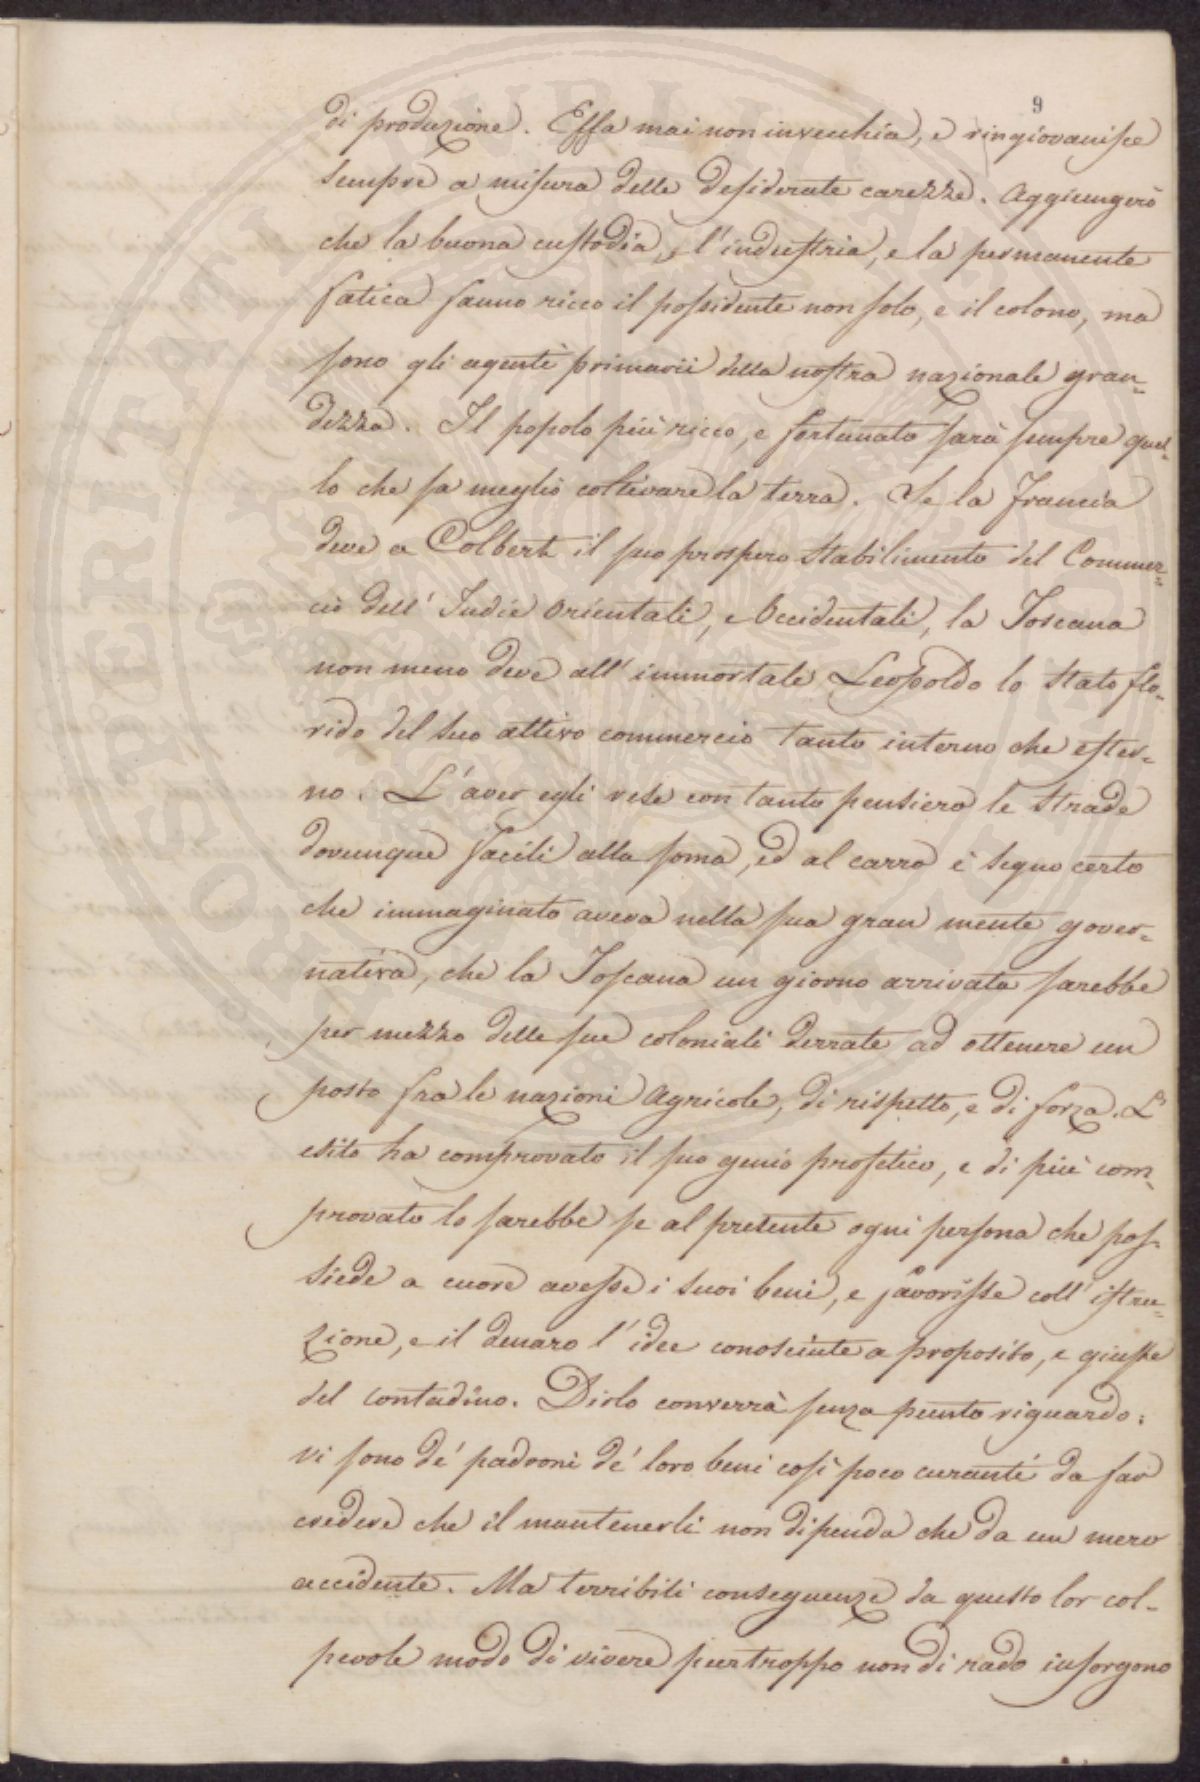 9
di produzione. Essa mai non invecchia, e ringiovanisce
sempre a misura delle desiderate carezze. Aggiungerò
che la buona custodia, l'industria, e la permanente
fatica fanno ricco il possidente non solo, e il colono, ma
sono gli agenti primarii della nostra nazionale gran=
dezza. Il popolo più ricco, e fortunato sarà sempre quel=
lo che sa meglio coltivare la terra. Se la Francia
deve a Colbert il suo prospero stabilimento del Commer=
cio dell' Indie Orientali, e Occidentali, la Toscana
non meno deve all' immortale Leopoldo lo stato flo=
rido del suo attivo commercio tanto interno che ester=
no. L'aver egli rese con tanto pensiero le strade
dovunque facili alla soma, ed al carro è segno certo
che immaginato aveva nella sua gran mente gover=
nativa, che la Toscana un giorno arrivata sarebbe
per mezzo delle sue coloniali derrate ad ottenere un
posto fra le nazioni Agricole, di rispetto, e di forza. L'
esito ha comprovato il suo genio profetico, e di più com=
provato lo sarebbe se al presente ogni persona che pos=
siede a cuore avesse i suoi beni, e favorisse coll' istru=
zione, e il denaro l' idee conosciute a proposito, e giuste
del contadino. Dirlo converrà senza punto riguardo:
vi sono de' padroni de' loro beni così poco curanti da far
credere che il mantenerli non dipenda che da un mero
accidente. Ma terribili conseguenze da questo lor col=
pevole modo di vivere purtroppo non di rado insorgono
PROSPERITATI PUBLICAE AUGENDAE